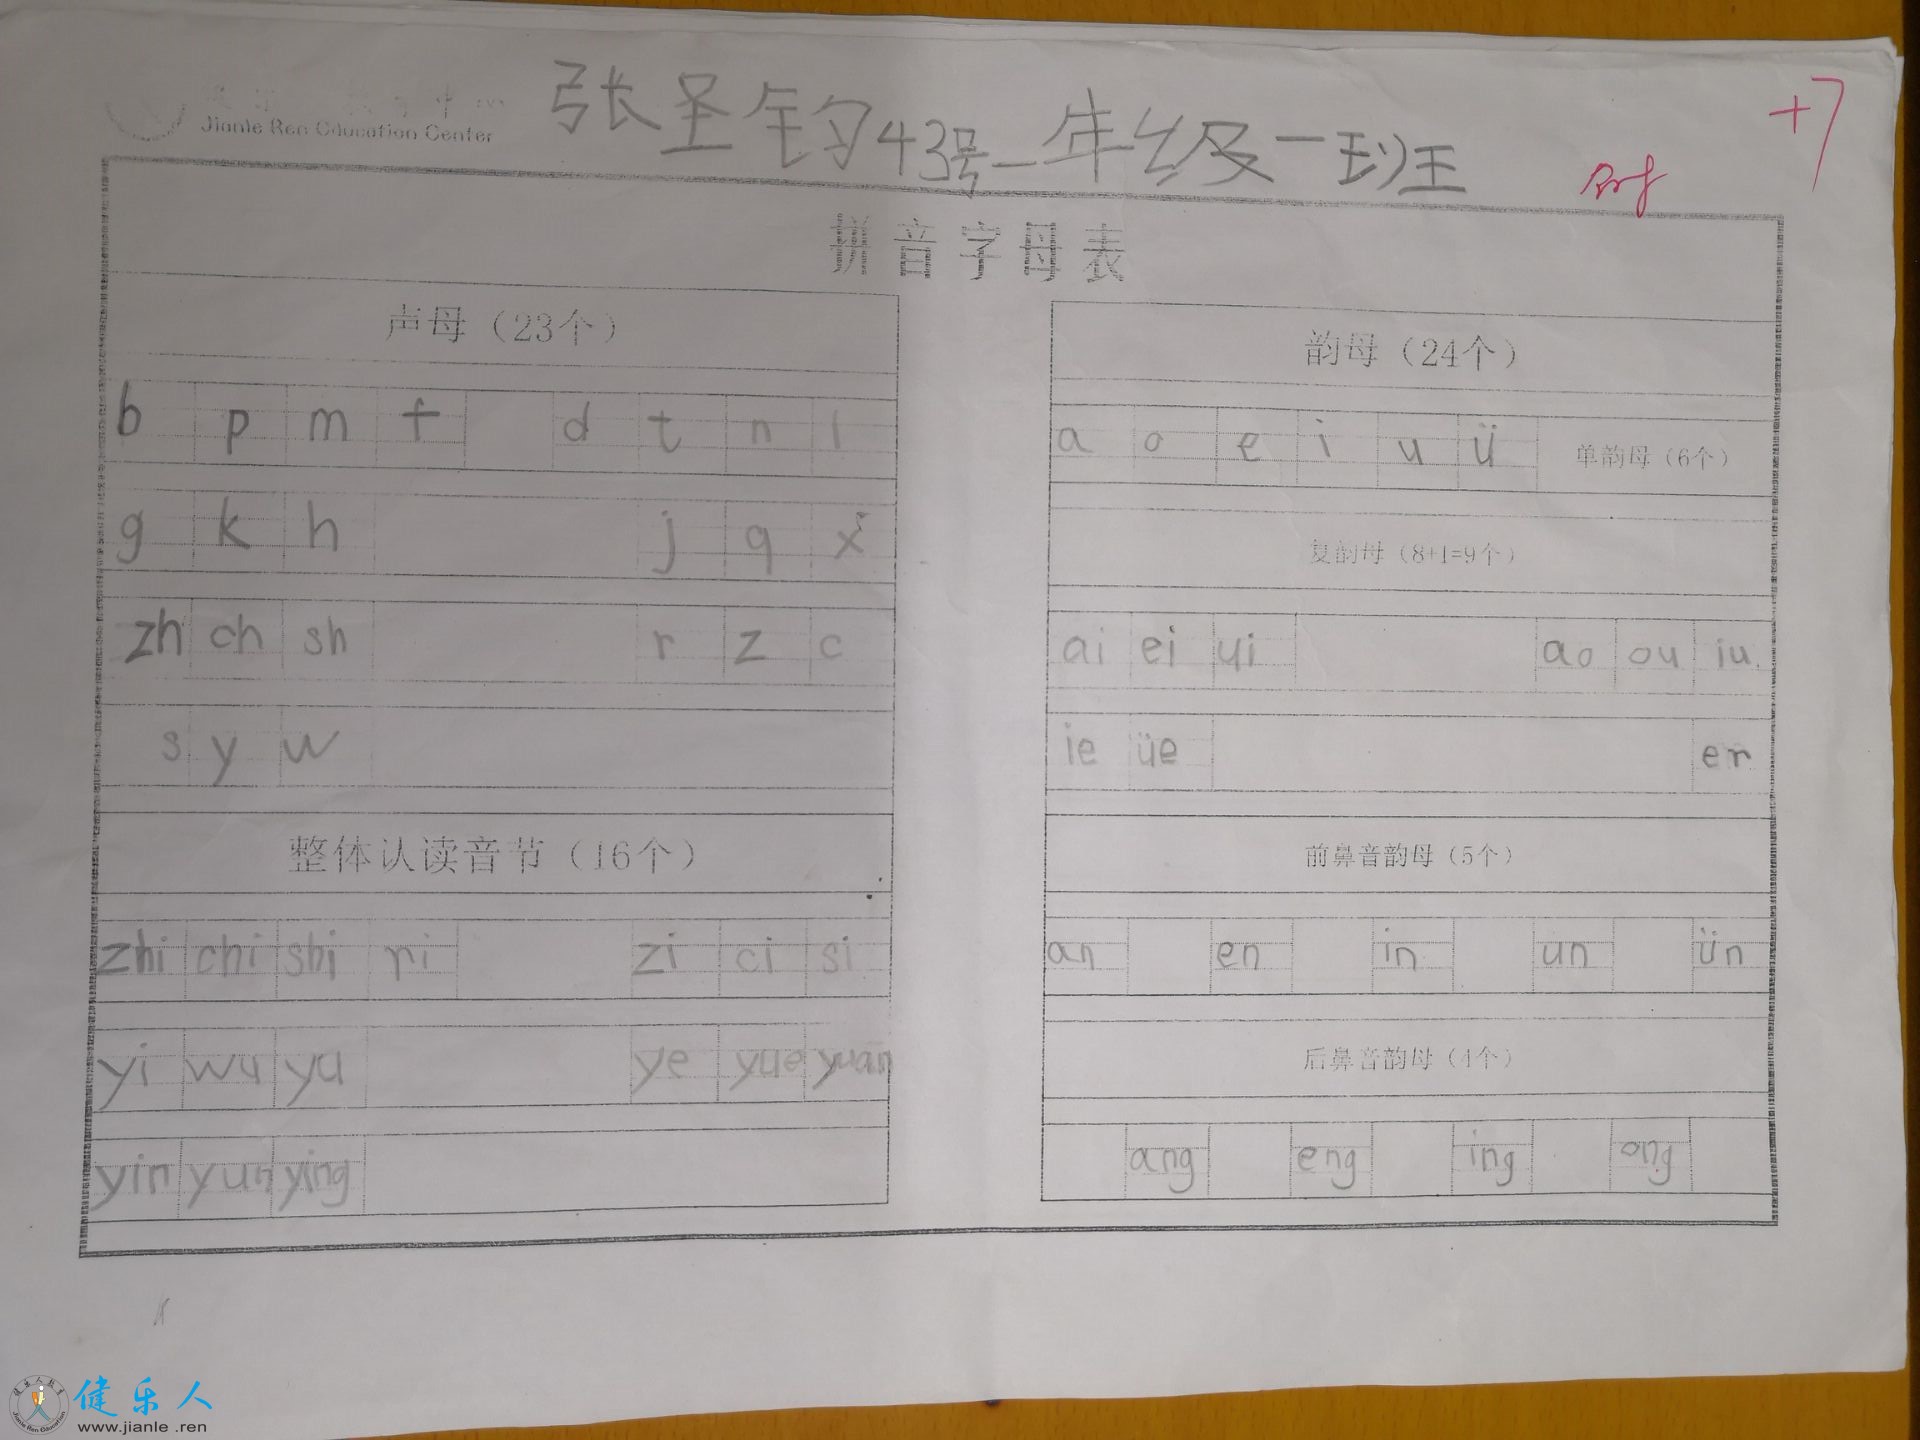 Jianle Ren Education Center
张圣钧43号一年级一班
+7
拼音字母表
声母（23个）
b p m f d t n l
g k h j q x
zh ch sh r z c
s y w
整体认读音节（16个）
zhi chi shi ri zi ci si
yi wu yu ye yue yuan
yin yun ying
韵母（24个）
a o e i u ü 单韵母（6个）
复韵母（8+1=9个）
ai ei ui ao ou iu
ie üe er
前鼻音韵母（5个）
an en in un ün
后鼻音韵母（4个）
ang eng ing ong
健乐人
www.jianle.ren